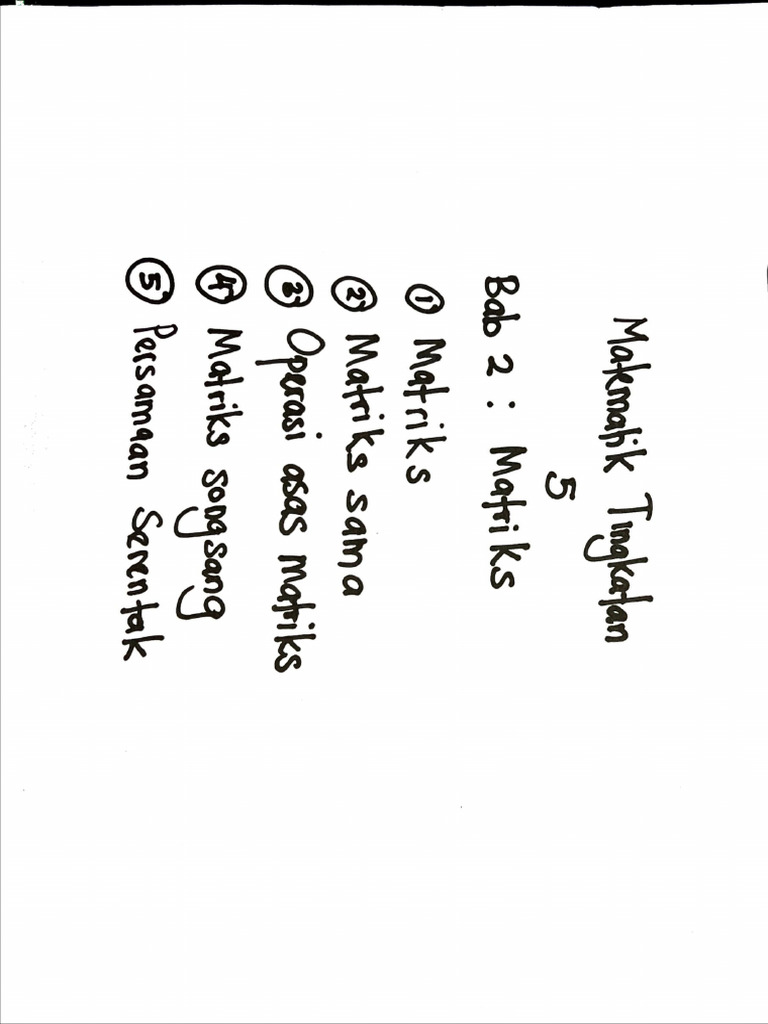 Matematik Tingkatan
5
Bab 2 : Matriks
① Matriks
② Matriks sama
③ Operasi asas matriks
④ Matriks songsang
⑤ Persamaan Serentak